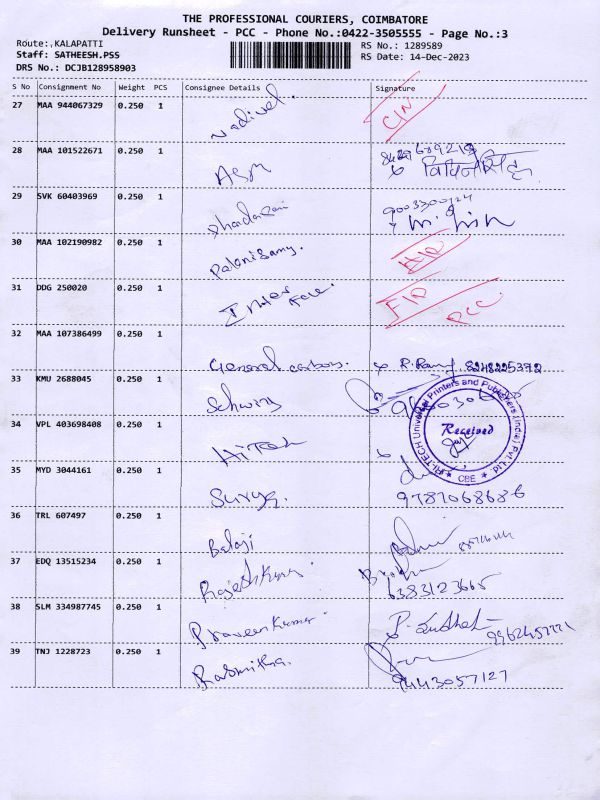 THE PROFESSIONAL COURIERS, COIMBATORE
Delivery Runsheet - PCC - Phone No.:0422-3505555 - Page No.:3
Route:,KALAPATTI
Staff: SATHEESH.PSS
DRS No.: DCJB128958903
RS No.: 1289589
RS Date: 14-Dec-2023
S No Consignment No Weight PCS Consignee Details Signature
27 MAA 944067329 0.250 1
28 MAA 101522671 0.250 1
29 SVK 60403969 0.250 1 9003300124
30 MAA 102190982 0.250 1 Palanisamy.
31 DDG 250020 0.250 1 Inter Face PCC.
32 MAA 107386499 0.250 1 General carbon.
33 KMU 2688045 0.250 1 Schwing
34 VPL 403698408 0.250 1 HiTech
HI-TECH Universal Printers and Publishers (India) Pvt. Ltd
Received
CBE
35 MYD 3044161 0.250 1 Surya. 9787068686
36 TRL 607497 0.250 1 Balaji
37 EDQ 13515234 0.250 1 Rajeshkumar 6383123665
38 SLM 334987745 0.250 1 Praveen Kumar.
39 TNJ 1228723 0.250 1 Rasmitha. 9443057127